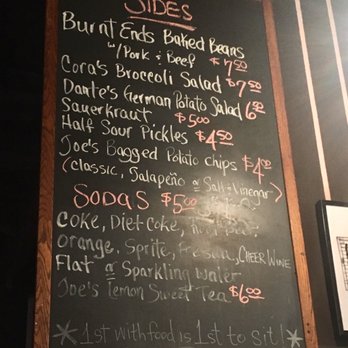 SIDES
Burnt Ends Baked Beans
w/Pork & Beef $7.50
Cora's Broccoli Salad $7.50
Dante's German Potato Salad 6.50
Sauerkraut $5.00
Half Sour Pickles $4.50
Joe's Bagged Potato Chips $4.00
(Classic, Jalapeño or Salt & Vinegar)
SODAS $5.00
Coke, Diet Coke, Root Beer,
Orange, Sprite, CHEER WINE
Flat or Sparkling Water
Joe's Lemon Sweet Tea $6.00
*1st with food is 1st to sit!*